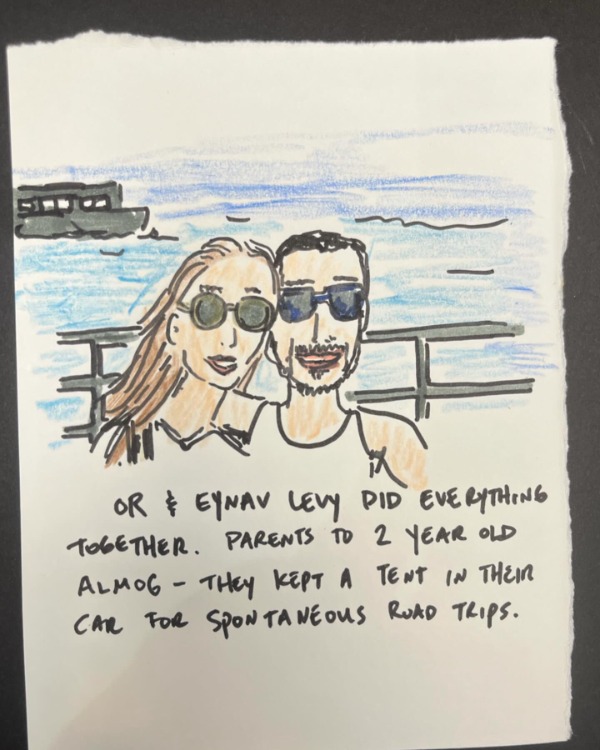 OR & EYNAV LEVY DID EVERYTHING
TOGETHER. PARENTS TO 2 YEAR OLD
ALMOG - THEY KEPT A TENT IN THEIR
CAR FOR SPONTANEOUS ROAD TRIPS.